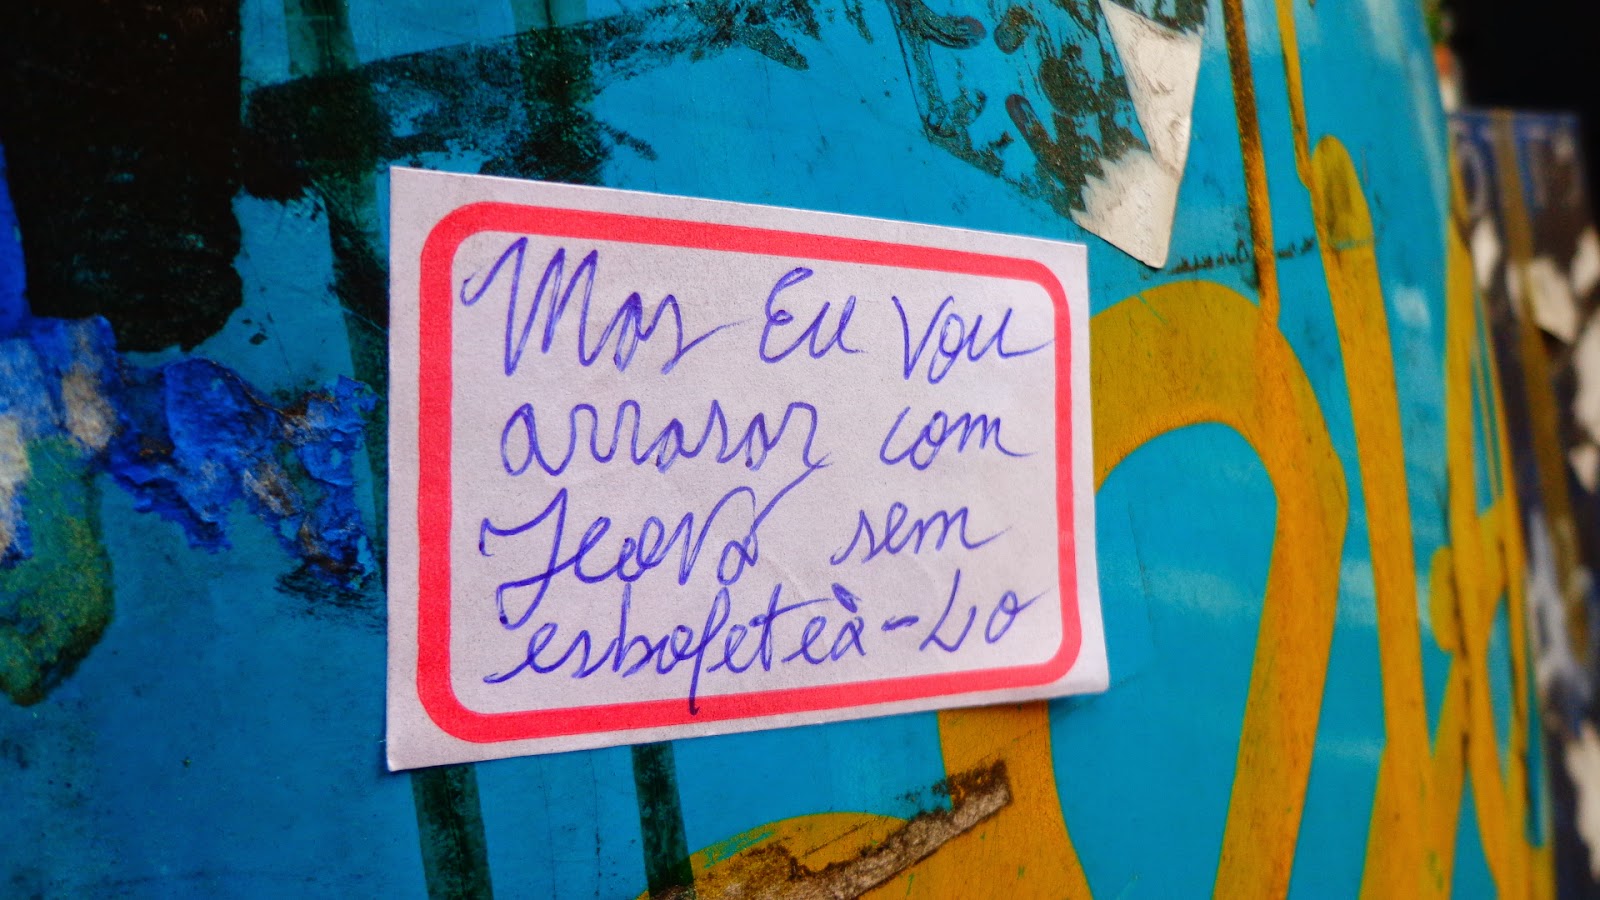 Mas Eu Vou
arrasar com
Jeová sem
esbofeteà-Lo